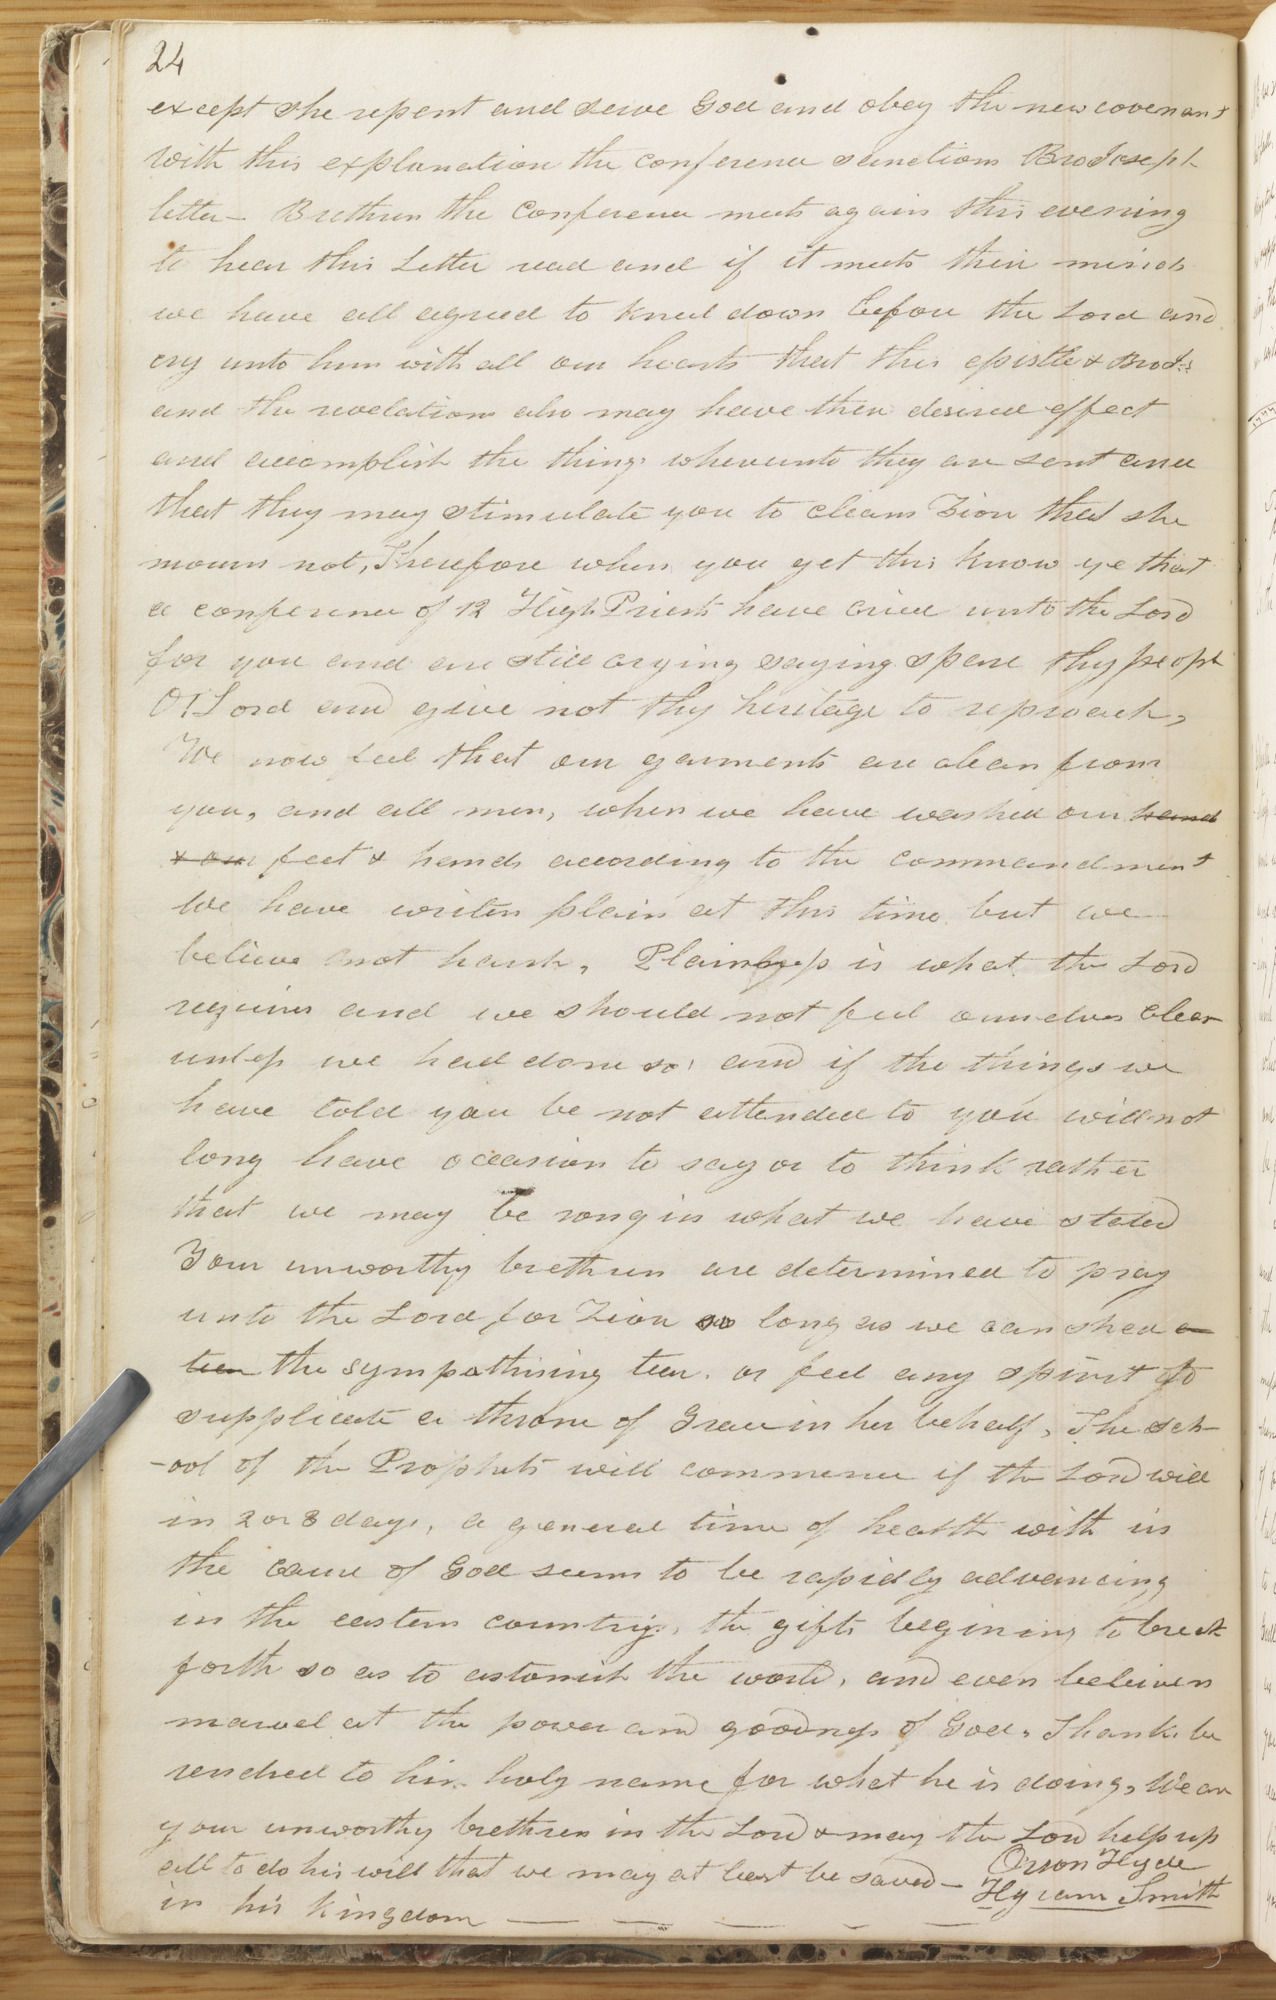 24
except she repent and serve God and obey the new covenant
with this explanation the conference sanctions Bro Joseph
letter— Brethren the conference meets again this evening
to hear this Letter read and if it meets their minds
we have all agreed to kneel down before the Lord and
cry unto him with all our hearts that this epistle & Bro Js
and the revelations also may have their desired effect
and accomplish the things whereunto they are sent and
that they may stimulate you to cleans Zion that she
mourn not, Therefore when you get this know ye that
a conference of 12 High Priests have cried unto the Lord
for you and are still crying saying spare thy peopl
O! Lord and give not thy heritage to reproach,
We now feel that our garments are clean from
you, and all men, when we have washed our hand
& our feet & hands according to the commandment
We have writen plain at this time but we
believe not harsh, Plainness is what the Lord
requires and we should not feel ourselves clear
unless we had done so; and if the things we
have told you be not attended to you will not
long have occasion to say or to think rather
that we may be rong in what we have stated
Your unworthy brethren are determined to pray
unto the Lord for Zion so long as we can shed a
tear the sympathising tear. or feel any spirit to
supplicate a throne of Grace in her behalf, The sch-
-ool of the Prophets will commence if the Lord will
in 2 or 3 days, a general time of health with us
the cause of God seems to be rapidly advancing
in the eastern country, the gifts begining to break
forth so as to astonish the world, and even believers
marvel at the power and goodness of God, Thanks be
rendred to his holy name for what he is doing, We are
your unworthy brethren in the Lord & may the Lord help us
all to do his will that we may at least be saved—
in his kingdom — — — — —
Orson Hyde
Hyram Smith